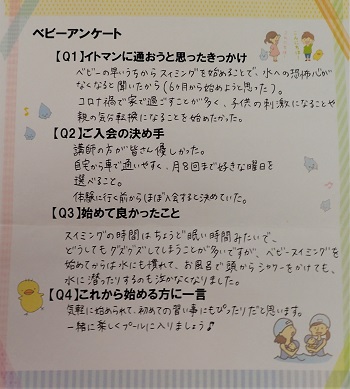 ベビーアンケート
【Q1】イトマンに通おうと思ったきっかけ
ベビーの早いうちからスイミングを始めることで、水への恐怖心が
なくなると聞いたから(6ヶ月から始めようと思った)。
コロナ禍で家で過ごすことが多く、子供の刺激になることや
親の気分転換になることを始めたかった。
【Q2】ご入会の決め手
講師の方が皆さん優しかった。
自宅から車で通いやすく、月8回まで好きな曜日を
選べること。
体験に行く前からほぼ入会すると決めていた。
【Q3】始めて良かったこと
スイミングの時間はちょうど眠い時間みたいで、
どうしてもグズグズしてしまうことが多いですが、ベビースイミングを
始めてからは水にも慣れて、お風呂で頭からシャワーをかけても、
水に潜ったりするのも泣かなくなりました。
【Q4】これから始める方に一言
気軽に始められて、初めての習い事にもぴったりだと思います。
一緒に楽しくプールに入りましょう♪